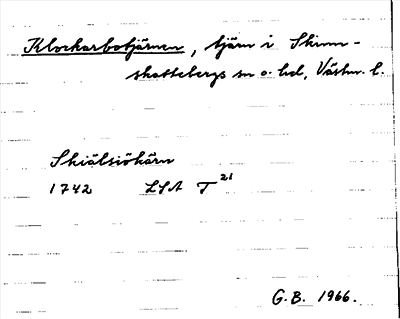 Klockarbotjärnen, tjärn i Skinn-
skattebergs sn o. hd, Västm. l.
Skiälsiökärn
1742 LSA T 21
G.B. 1966.